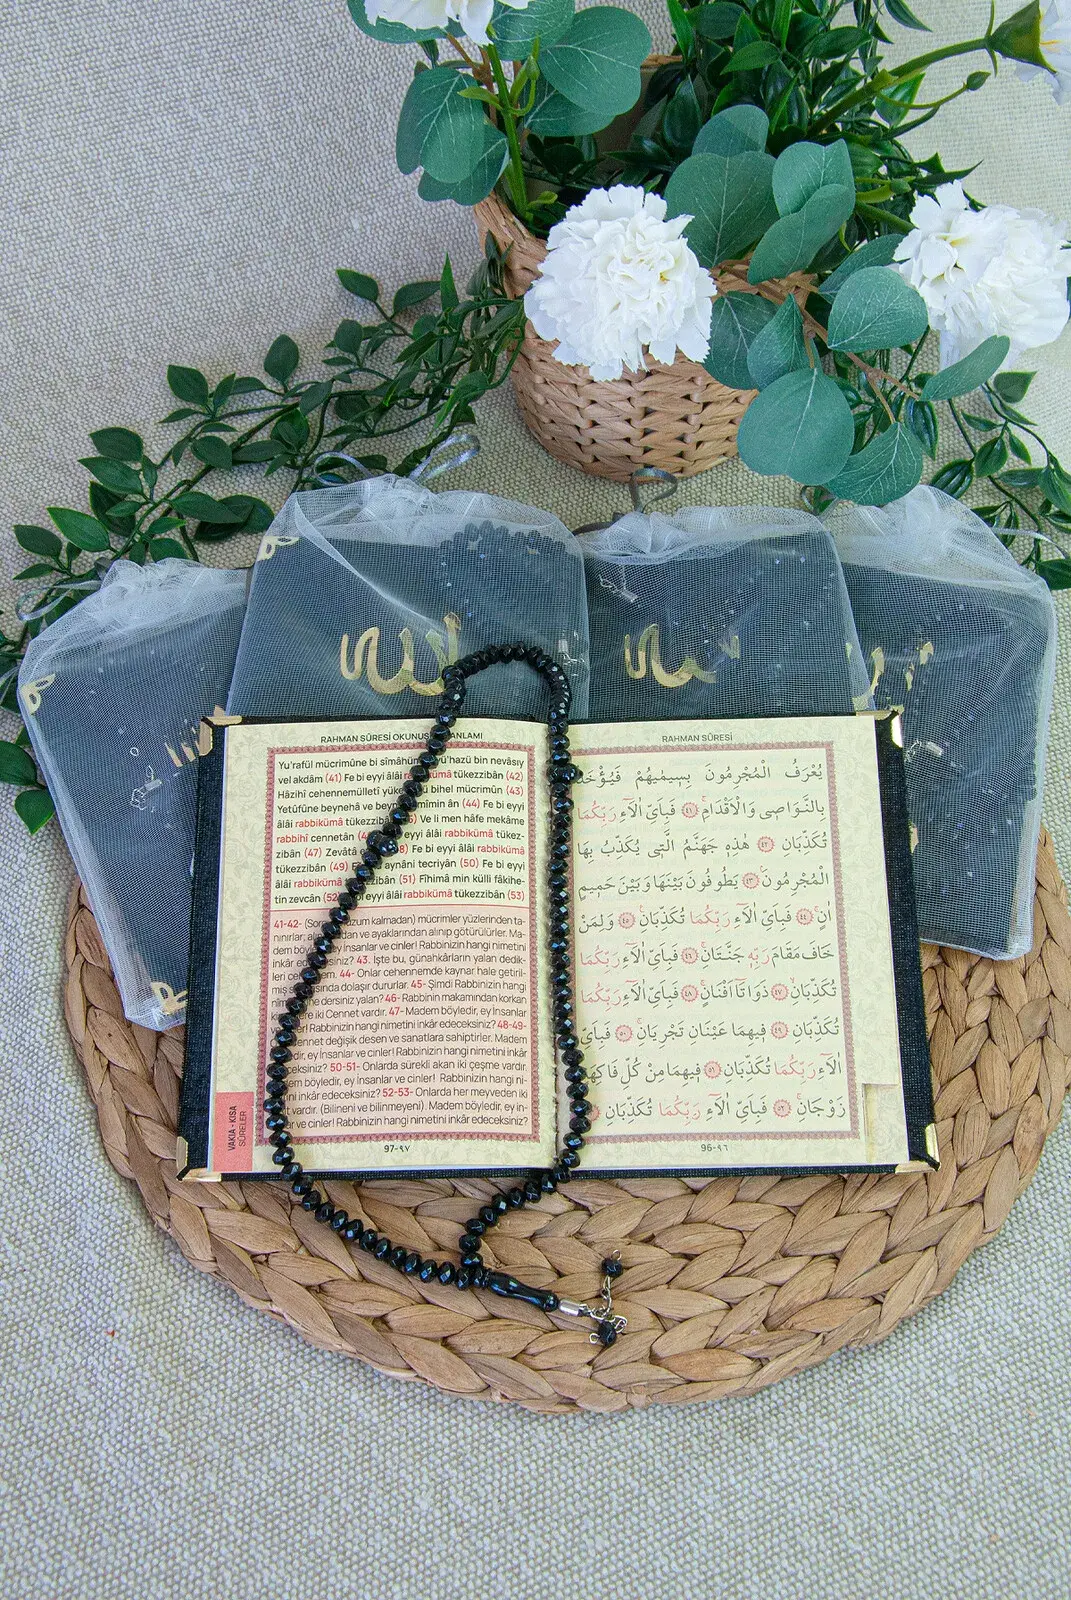 RAHMAN SÛRESİ OKUNUŞ ANLAMI
Yu'rafül mücrimûne bi sîmâhüm yü'hazü bin nevâsıy
vel akdâm (41) Fe bi eyyi âlâi rabbikümâ tükezzibân (42)
Hâzihî cehennemülletî yüke bihel mücrimûn (43)
Yetûfûne beynehâ ve beyn mîmin ân (44) Fe bi eyyi
âlâi rabbikümâ tükezzibân Ve li men hâfe mekâme
rabbihî cennetân eyyi âlâi rabbikümâ tükez-
zibân (47) Zevâtâ Fe bi eyyi âlâi rabbikümâ
tükezzibân (49) aynâni tecriyân (50) Fe bi eyyi
âlâi rabbikümâ tükezzibân (51) Fîhimâ min külli fâkihe-
tin zevcân (52) eyyi âlâi rabbikümâ tükezzibân (53)
41-42- kalmadan) mücrimler yüzlerinden ta-
nınırlar; ve ayaklarından alınıp götürülürler. Ma-
dem böyle ey insanlar ve cinler! Rabbinizin hangi nimetini
inkâr edeceksiniz? 43. İşte bu, günahkârların yalan dedik-
leri 44- Onlar cehennemde kaynar hale getiril-
miş arasında dolaşır dururlar. 45- Şimdi Rabbinizin hangi
ne dersiniz yalan? 46- Rabbinin makamından korkan
iki Cennet vardır. 47- Madem böyledir, ey insanlar
Rabbinizin hangi nimetini inkâr edeceksiniz? 48-49-
cennet değişik desen ve sanatlara sahiptirler. Madem
ey İnsanlar ve cinler! Rabbinizin hangi nimetini inkâr
50-51- Onlarda sürekli akan iki çeşme vardır.
böyledir, ey İnsanlar ve cinler! Rabbinizin hangi ni-
inkâr edeceksiniz? 52-53- Onlarda her meyveden iki
vardır. (Bilineni ve bilinmeyeni) Madem böyledir, ey in-
ve cinler! Rabbinizin hangi nimetini inkâr edeceksiniz?
97-٩٧
VAKIA - KISA
SÛRELER
RAHMAN SÛRESİ
يُعْرَفُ الْمُجْرِمُونَ بِسِيمٰيهُمْ فَيُؤْخَذُ
بِالنَّوَاصِى وَالْاَقْدَامِ ﴿٤١﴾ فَبِاَيِّ اٰلَٓاءِ رَبِّكُمَا
تُكَذِّبَانِ ﴿٤٢﴾ هٰذِهِ جَهَنَّمُ الَّتِى يُكَذِّبُ بِهَا
الْمُجْرِمُونَ ﴿٤٣﴾ يَطُوفُونَ بَيْنَهَا وَبَيْنَ حَمِيمٍ
اٰنٍ ﴿٤٤﴾ فَبِاَيِّ اٰلَٓاءِ رَبِّكُمَا تُكَذِّبَانِ ﴿٤٥﴾ وَلِمَنْ
خَافَ مَقَامَ رَبِّهِ جَنَّتَانِ ﴿٤٦﴾ فَبِاَيِّ اٰلَٓاءِ رَبِّكُمَا
تُكَذِّبَانِ ﴿٤٧﴾ ذَوَاتَٓا اَفْنَانٍ ﴿٤٨﴾ فَبِاَيِّ اٰلَٓاءِ رَبِّكُمَا
تُكَذِّبَانِ ﴿٤٩﴾ فِيهِمَا عَيْنَانِ تَجْرِيَانِ ﴿٥٠﴾ فَبِاَيِّ
اٰلَٓاءِ رَبِّكُمَا تُكَذِّبَانِ ﴿٥١﴾ فِيهِمَا مِنْ كُلِّ فَاكِهَةٍ
زَوْجَانِ ﴿٥٢﴾ فَبِاَيِّ اٰلَٓاءِ رَبِّكُمَا تُكَذِّبَانِ
96-٩٦